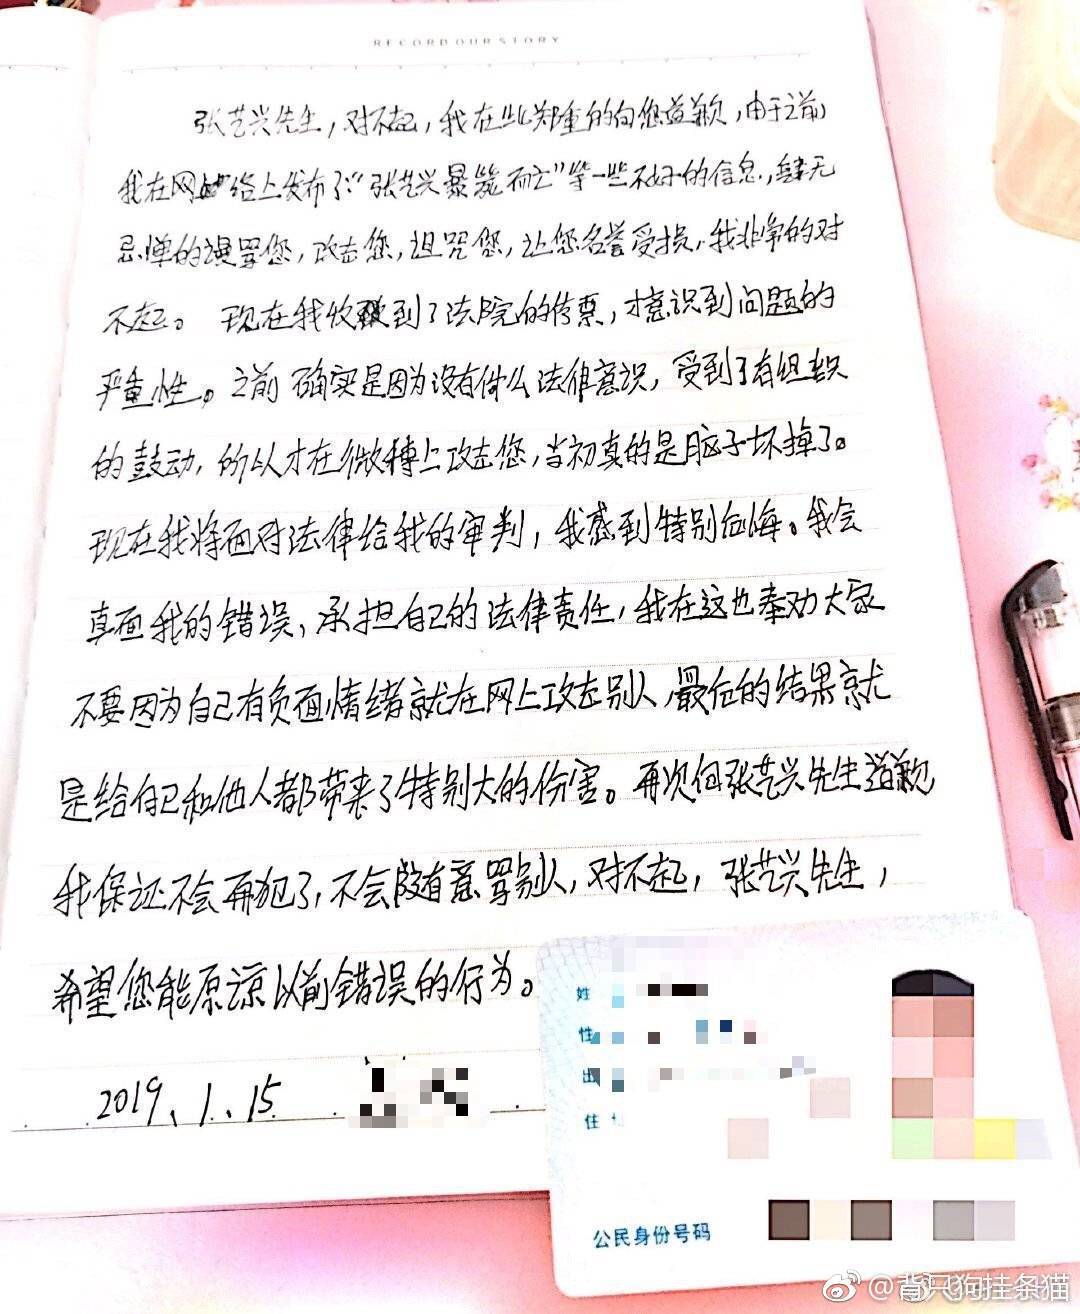 RECORD OUR STORY
张艺兴先生，对不起，我在此郑重的向您道歉，由于之前
我在网络上发布了“张艺兴暴毙而亡”等一些不好的信息，肆无
忌惮的谩骂您，攻击您，诅咒您，让您名誉受损，我非常的对
不起。现在我收到了法院的传票，才意识到问题的
严重性。之前确实是因为没有什么法律意识，受到了有组织
的鼓动，所以才在微博上攻击您，当初真的是脑子坏掉了。
现在我将面对法律给我的审判，我感到特别后悔。我会
直面我的错误，承担自己的法律责任，我在这也奉劝大家
不要因为自己有负面情绪就在网上攻击别人，最后的结果就
是给自己和他人都带来了特别大的伤害。再次向张艺兴先生道歉
我保证不会再犯了，不会随意骂别人，对不起，张艺兴先生，
希望您能原谅以前错误的行为。
2019、1、15
姓
性
出
住
公民身份号码
@背只狗挂条猫